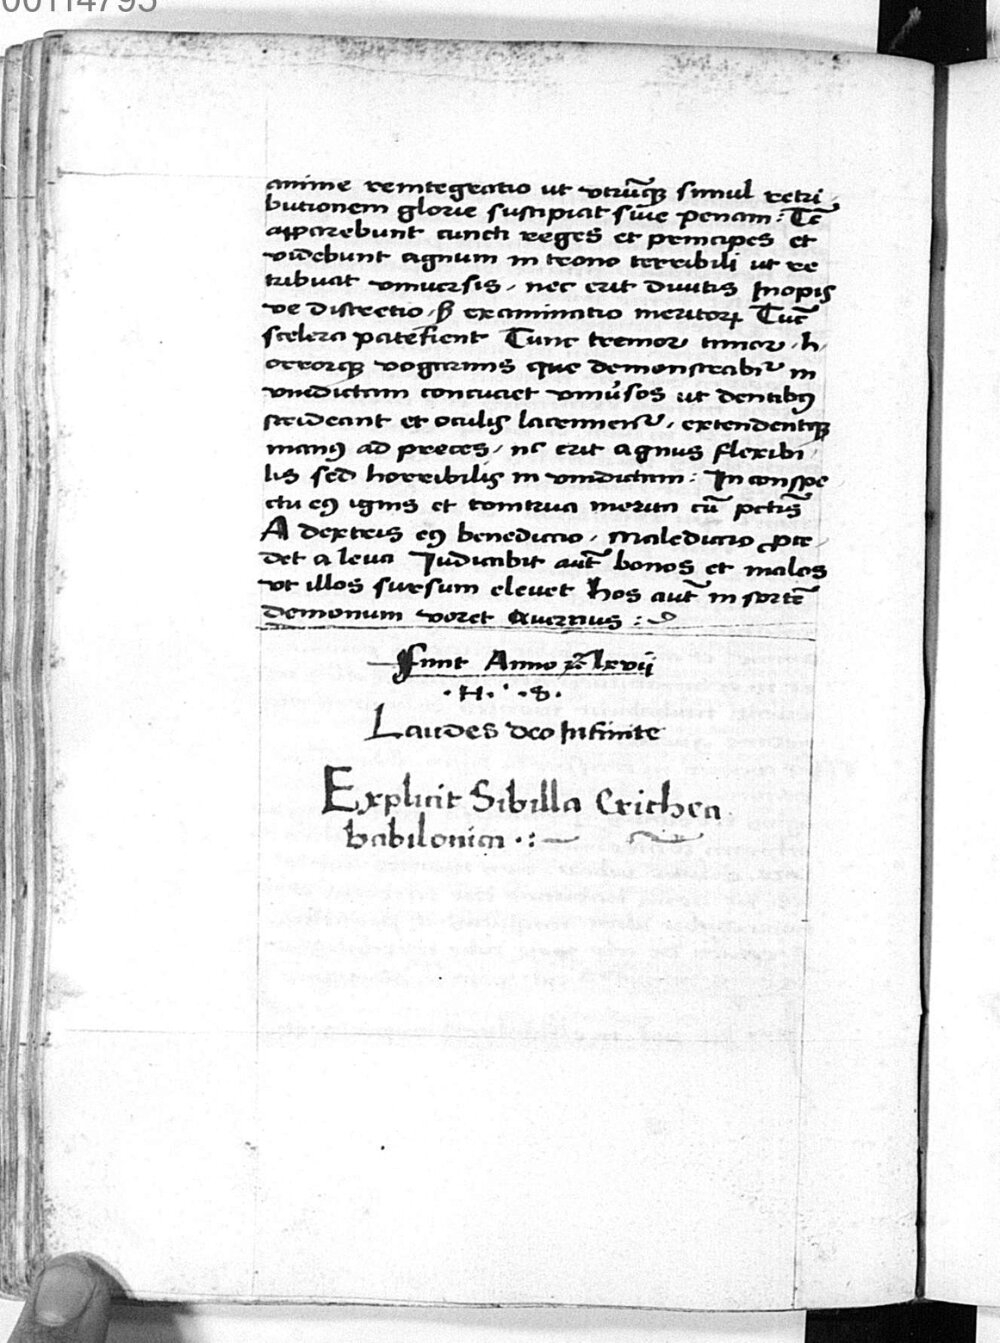 00114795
anime reintegratio ut vtrūq̄ꝫ simul retri
butionem glorie suscipiat siue penam: Tc̄
apparebunt cuncti reges et principes et
videbunt agnum in trono terribili ut re
tribuat vniuersis, nec erit diuitis Inopis
ue districtio, ꝫ examinatio meritoꝝ Tūc
scelera patefient Tunc tremor timor, h,
orrorqꝫ vogitimis que demonstrabit᷑ in
vindictam concutiet vniu͛sos ut dentibꝰ
strideant et oculis lacrimenẗ, extendentqꝫ
manꝰ ad preces, nc erit agnus flexibi,
lis sed horribilis in vindictam: In conspe
ctu eꝰ ignis et tonitrua
A dextris eꝰ benedictio, Maledictio ꝓce,
det a leua Iudicabit aut̄ bonos et malos
vt illos sursum eleuet hos aut̄ in sortē
demonum voret Auernus :
Finit Anno lxvij
·H· ·S·
Laudes deo Infinite
Explicit Sibilla Erithea
babilonica ·: